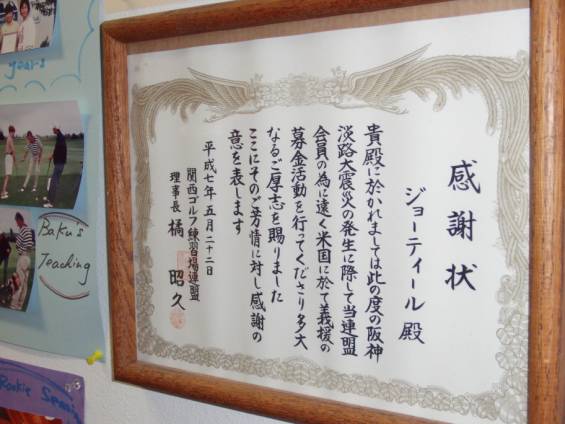 感謝状
ジョーティール 殿
貴殿に於かれましては此の度の阪神
淡路大震災の発生に際して当連盟
会員の為に遠く米国に於て義援の
募金活動を行ってくださり多大
なるご厚志を賜りました
ここにそのご芳情に対し感謝の
意を表します
平成七年五月二十二日
関西ゴルフ練習場連盟
理事長 橘 昭久
Baku's
Teaching
Rookie